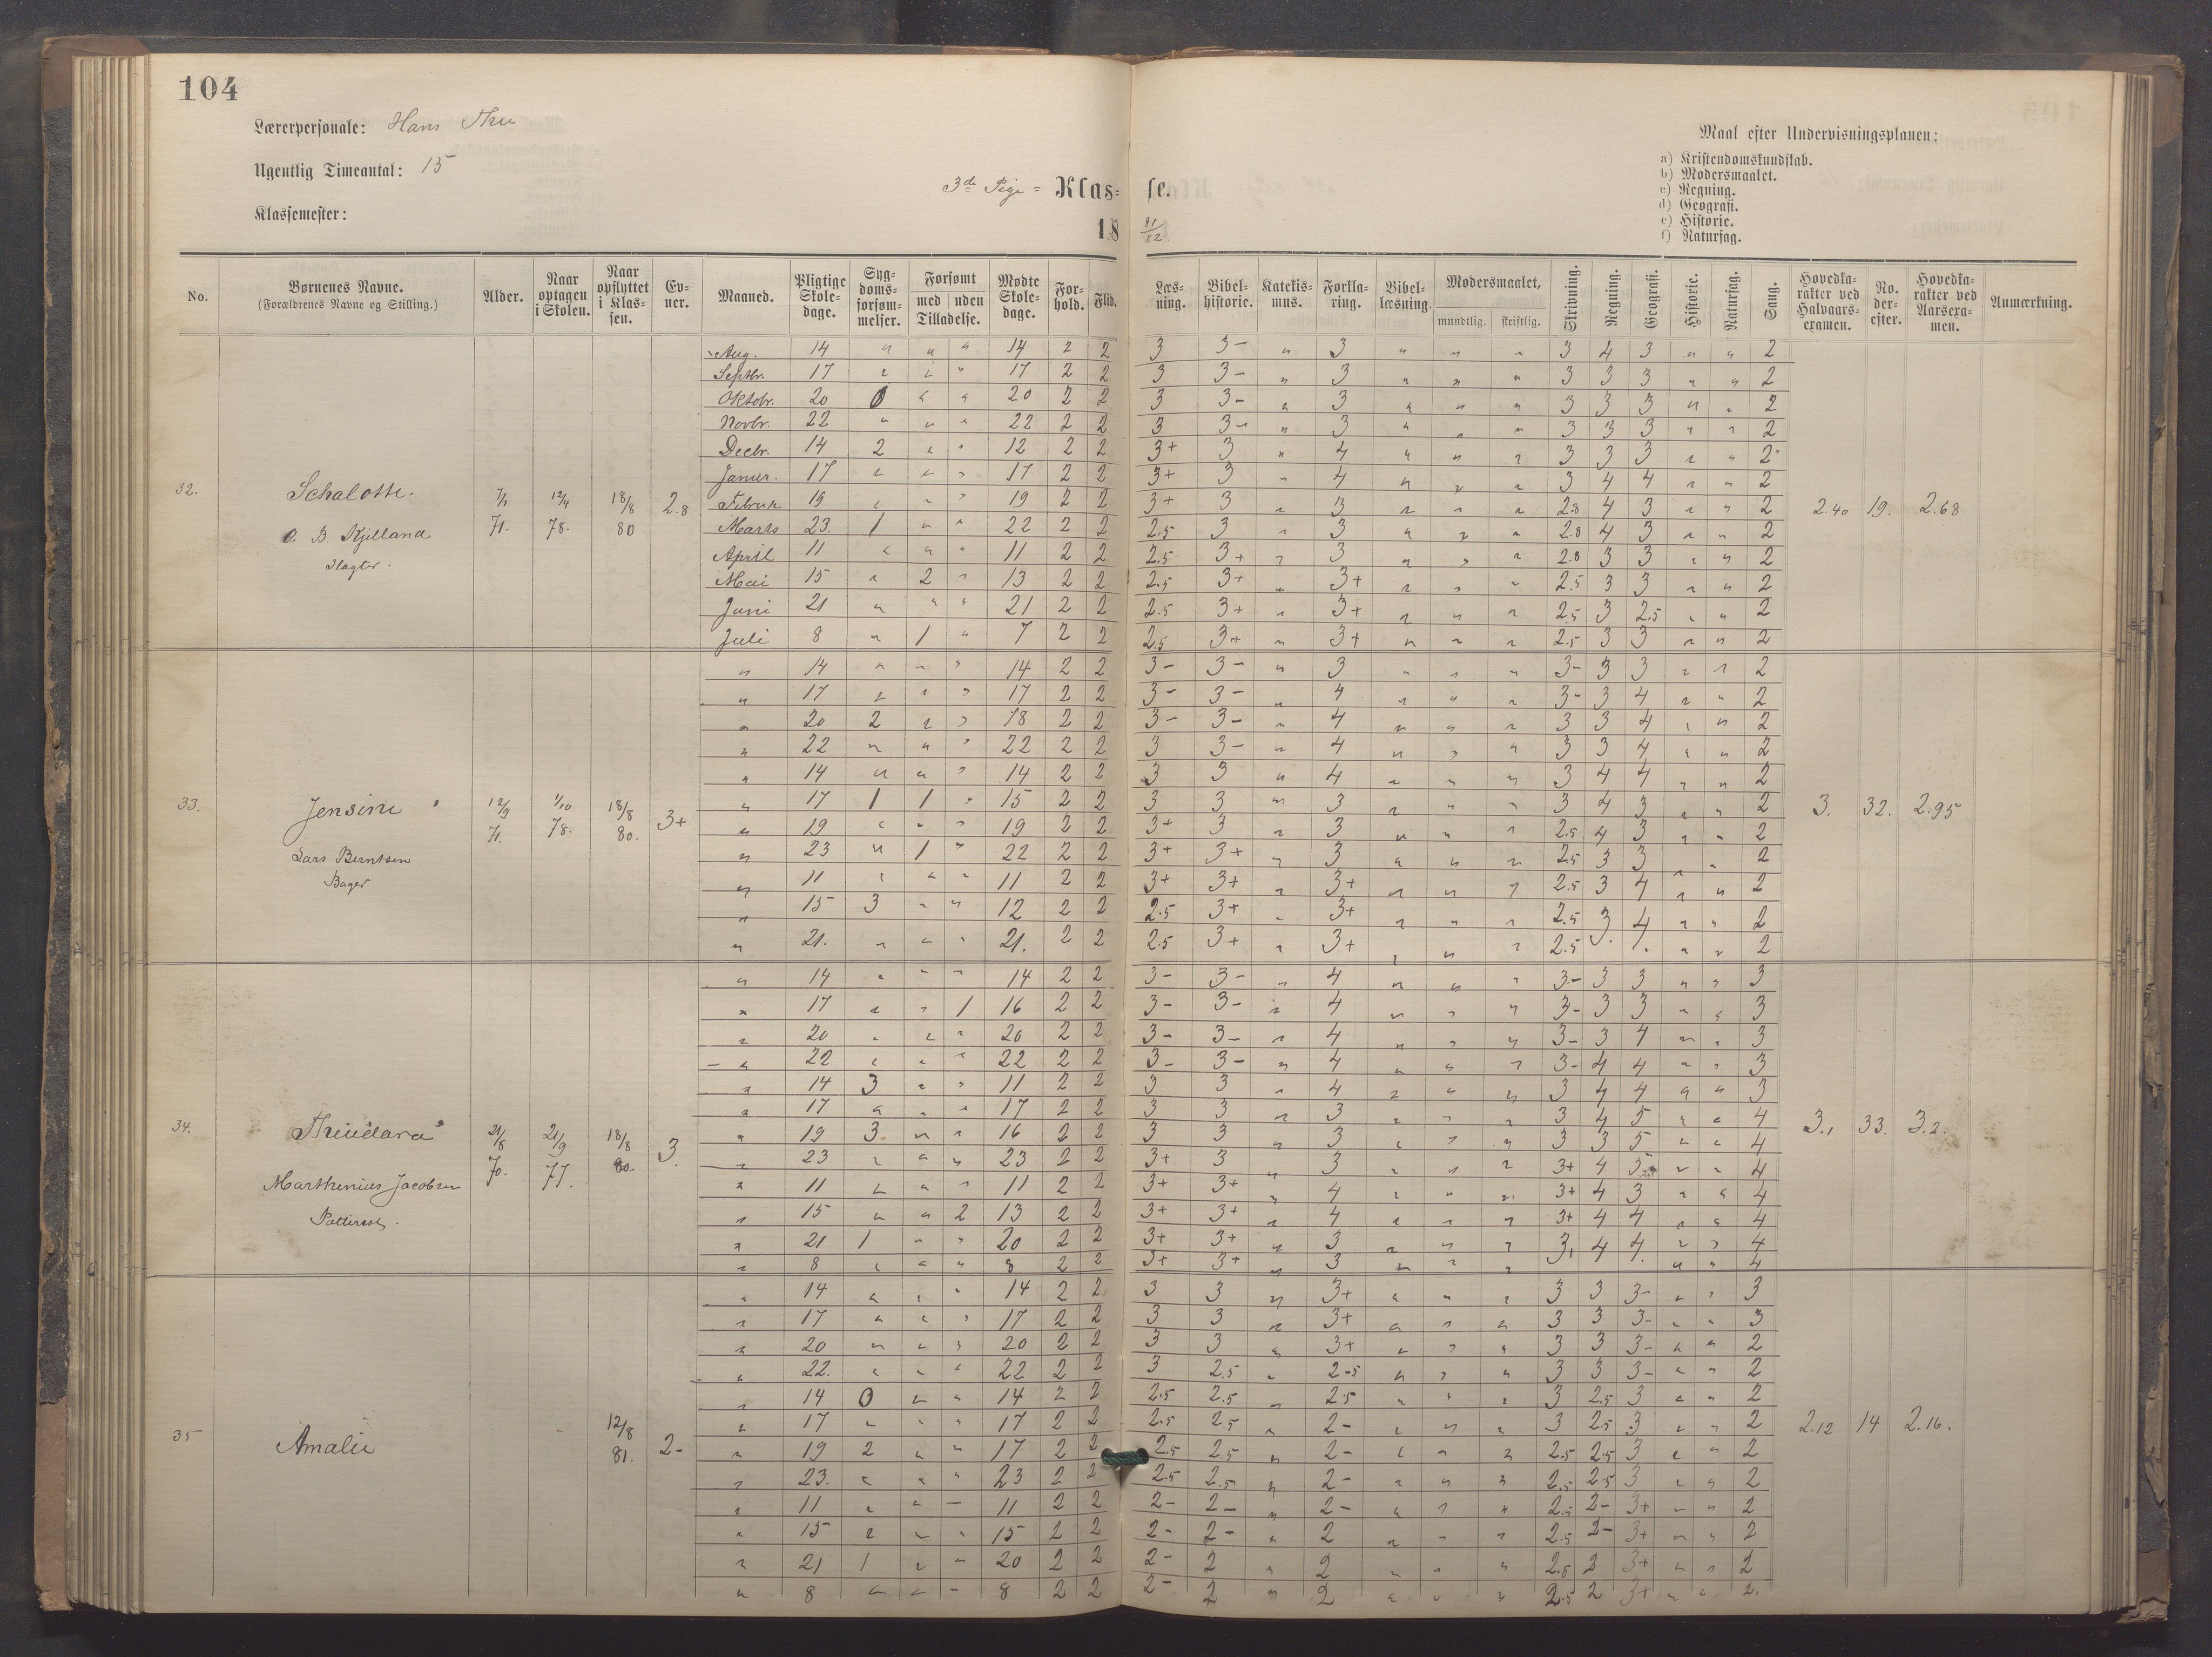 104
Lærerpersonale: Hans Thu
Ugentlig Timeantal: 15
Klassemester:
3de Pige = Klas= se.
18 81/82
Maal efter Undervisningsplanen:
a) Kristendomskundskab.
b) Modersmaalet.
c) Regning.
d) Geografi.
e) Historie.
f) Naturfag.
No. Børnenes Navne. (Forældrenes Navne og Stilling.) Alder. Naar optagen i Skolen. Naar opflyttet i Klassen. Evner. Maaned. Pligtige Skoledage. Sygdomsforsømmelser. Forsømt med uden Tilladelse. Mødte Skoledage. Forhold. Flid. Læsning. Bibelhistorie. Katekismus. Forklaring. Bibellæsning. Modersmaalet, mundtlig. skriftlig. Skrivning. Regning. Geografi. Historie. Naturfag. Sang. Hovedkarakter ved Halvaarsexamen. No. derefter. Hovedkarakter ved Aarsexamen. Anmærkning.
32. Schalotte. O. B. Kjelland Slagter. 7/1 71. 12/4 78. 18/8 80 2.8 2.40 19. 2.68
Aug. 14 " " " 14 2 2 3 3- " 3 " " " 3 4 3 " " 2
Septbr. 17 " " " 17 2 2 3 3- " 3 " " " 3 3 3 " " 2
Oktobr. 20 0 " " 20 2 2 3 3- " 3 " " " 3 3 3 " " 2
Novbr. 22 " " " 22 2 2 3 3- " 3 " " " 3 3 3 " " 2
Decbr. 14 2 " " 12 2 2 3+ 3 " 4 " " " 3 3 3 " " 2
Januar. 17 " " " 17 2 2 3+ 3 " 4 " " " 3 4 4 " " 2
Februar 19 " " " 19 2 2 3+ 3 " 3 " " " 2.8 4 3 " " 2
Marts 23. 1 " " 22 2 2 2.5 3 " 3 " " " 2.8 4 3 " " 2
April 11 " " " 11 2 2 2.5 3+ " 3 " " " 2.8 3 3 " " 2
Mai 15 " 2 " 13 2 2 2.5 3+ " 3+ " " " 2.5 3 3 " " 2
Juni 21 " " " 21 2 2 2.5 3+ " 3+ " " " 2.5 3 2.5 " " 2
Juli 8 " 1 " 7 2 2 2.5 3+ " 3+ " " " 2.5 3 3 " " 2
33. Jensine Lars Berntsen Bager 12/9 71. 1/10 78. 18/8 80. 3+ 3. 32. 2.95
" 14 " " " 14 2 2 3- 3- " 3 " " " 3- 3 3 " " 2
" 17 " " " 17 2 2 3- 3- " 4 " " " 3- 3 4 " " 2
" 20 2 " " 18 2 2 3- 3- " 4 " " " 3 3 4 " " 2
" 22 " " " 22 2 2 3 3- " 4 " " " 3 3 4 " " 2
" 14 " " " 14 2 2 3 3 " 4 " " " 3 4 4 " " 2
" 17 1 1 " 15 2 2 3 3 " 3 " " " 3 4 3 " " 2
" 19 " " " 19 2 2 3+ 3 " 3 " " " 2.5 4 3 " " 2
" 23 " 1 " 22 2 2 3+ 3+ " 3 " " " 2.5 3 3 " " 2
" 11 " " " 11 2 2 3+ 3+ " 3+ " " " 2.5 3 4 " " 2
" 15 3 " " 12 2 2 2.5 3+ " 3+ " " " 2.5 3 4 " " 2
" 21. " " " 21. 2 2 2.5 3+ " 3+ " " " 2.5 " " 2
34. Marthinius Jacobsen 21/8 70. 21/9 77. 18/8 80. 3. 3.1 33. 3.2.
" 14 " " " 14 2 2 3- 3- " 4 " " " 3- 3 3 " " 3
" 17 " " 1 16 2 2 3- 3- " 4 " " " 3- 3 3 " " 3
" 20 " " " 20 2 2 3- 3- " 4 " " " 3- 3 4 " " 3
" 22 " " " 22 2 2 3- 3- " 4 " " " 3- 4 4 " " 3
" 14 3 " " 11 2 2 3 3 " 4 " " " 3 4 4 " " 3
" 17 " " " 17 2 2 3 3 " 3 " " " 3 4 5 " " 4
" 19 3 " " 16 2 2 3 3 " 3 " " " 3 3 5 " " 4
" 23 " " " 23 2 2 3+ 3 " 3 " " " 3+ 4 5 " " 4
" 11 " " " 11 2 2 3+ 3+ " 4 " " " 3+ 4 3 " " 4
" 15 " " 2 13 2 2 3+ 3+ " 4 " " " 3+ 4 4 " " 4
" 21 1 " " 20 2 2 3+ 3+ " 3 " " " 3, 4 4 " " 4
" 8 " " " 8 2 2 3+ 3+ " 3 " " " " " 4
35 Amalie - 12/8 81. 2- 2.12 14 2.16.
" 14 " " " 14 2 2 3 3 " 3+ " " " 3 3 3- " " 3
" 17 " " " 17 2 2 3 3 " 3+ " " " 3 3 3- " " 3
" 20 " " " 20 2 2 3 3 " 3+ " " " 3 3 3- " " 2
" 22. " " " 22 2 2 3 2.5 " 2-5 " " " 3 3 3- " " 2
" 14 0 " " 14 2 2 2.5 2.5 " 2.5 " " " 3 2.5 3 " " 2
" 17 " " " 17 2 2 2.5 2.5 " 2- " " " 3 2.5 3 " " 2
" 19 2 " " 17 2 2 2.5 2.5 " 2- " " " 2.5 2.5 3 " " 2
" 23. " " " 23 2 2 2.5 2.5 " 2- " " " 2.5 2.5 3 " " 2
" 11 " " - 11 2 2 2- 2- " 2- " " " 2.5 2- 3+ " " 2
" 15 " " " 15 2 2 2- 2- " 2 " " " 2.5 2- 3+ " " 2
" 21 1 " - 20 2 2 2- 2 " 2 " " " 2.5 2 3+ " " 2
" 8 " " - 8 2 2 2- 2 " 2 " " " 2.5 2 3+ " " 2.